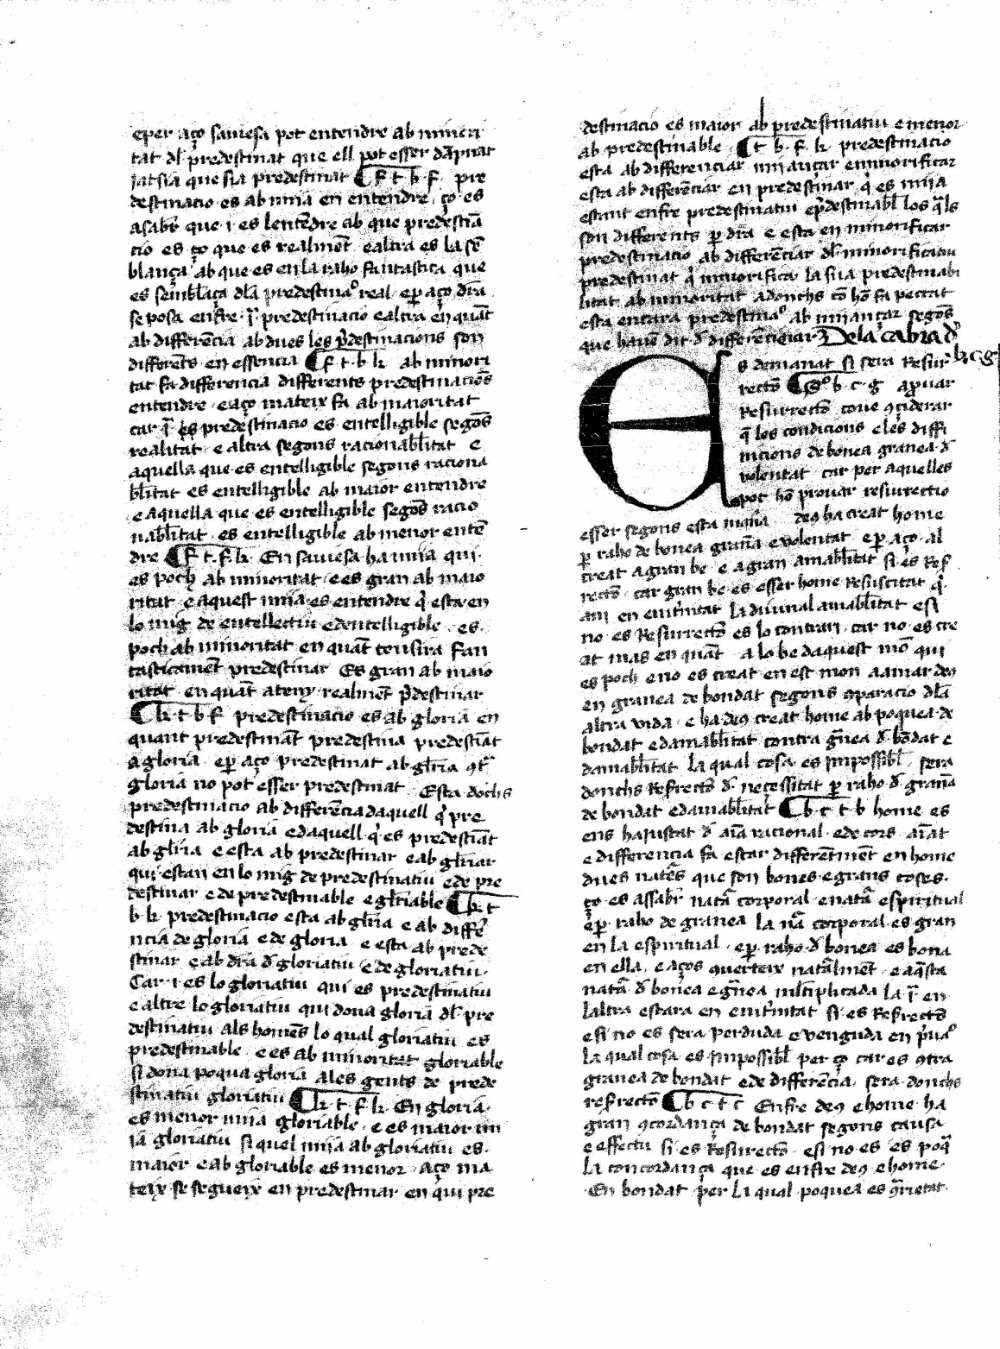 eper aço sauiesa pot entendre ab minori
tat dl̄ predestinat que ell pot esser dāpnat
jatsia que sia predestinat ¶ f t b f pre
destinacio es ab mia en entendre ço es
asabr̄ que ·i· es lentēdre ab que predestīa
cio es ço que es realmēt ealtra es la sē
blança ab que es en la raho fantastica que
es sēblāça dl̄a predestinao real eper aço dr̄a
se posa enfre ·ia· predestinacio ealtra en quāt
ab differēcia ab dues les p̄destinacions son
differēts en essencia ¶ f t b k ab minori
tat fa differencia differents predestinaciōs
entendre eaço mateix fa ab maioritat
car ·ia· es predestinacio es entelligible segōs
realitat e altra segons racionabl̄itat e
aquella que es entelligible segons raciona
bl̄itat es entelligible ab maior entendre
e aquella que es entelligible segōs racio
nabl̄itat es entelligible ab menor entē
dre ¶ f t f k En sauiesa ha mia qui
es poch ab minoritat e es gran ab maio
ritat e aquest mia es entendre q̄ esta en
lo mig de entellectiu edentelligible es
poch ab minoritat en quāt consira fan
tasticamēt predestinar Es gran ab maio
ritat en quāt ateny realmēt p̄destinar
¶ k t b f predestinacio es ab gloria en
quant predestināt predestina predestināt
a gloria eper aço predestinat ab gl̄ria 9tra
gloria no pot esser predestinat Esta dochs
predestinacio ab differēcia daquell q̄ pre
destina ab gloria edaquell q̄ es predestināt
ab gl̄ria e esta ab predestinar e ab gl̄riar
qui estan en lo mig de predestinatiu e de pre
destinar e de predestinable e gl̄riable ¶ k t
b k predestinacio esta ab gl̄ria e ab diffē
ncia de gloria e de gloria e esta ab prede
stinar e ab dr̄a d̄ gloriatiu e de gloriatiu
Car ·i· es lo gloriatiu qui es predestinatiu
e altre lo gloriatiu qui dona gloria dl̄ pre
destinatiu als homēs lo qual gloriatiu es
predestinable e es ab minoritat gloriable
si dona poqua gloria ales gents de prede
stinatiu gloriatiu ¶ k t f k En gloria
es menor mia gloriable e es maior mi
ia gloriatiu si quel mia ab gloriatiu es
maior e ab gloriable es menor aço ma
teix se segueix en predestinar en q̄ui pre
destinacio es maior ab predestinatiu e menor
ab predestinable ¶ t b f k predestinacio
esta ab differenciar maiançar eminorificar
esta ab differēciar en predestinar q̄ es mia
estant enfre predestinatiu ep̄destinabl̄ los q̄ls
son differents p̄ dr̄a e esta en minorificar
predestinacio ab differēciar dl̄ minorificatiu
predestinat q̄ minorifica la sua predestinabi
litat ab minoritat adonchs cō hō fa peccat
esta encara predestinao ab maiançar segōs
que hauē dit d̄ differēciar De la cābra d̄
b c g
Es demanat si sera Resur
rectō ¶ So b c g a prouar
Resurrectō coue 9siderar
q̄ los condicions e les diffi
nicions de bonea granea d̄
volentat car per aquelles
pot hō prouar resurrectio
esser segons esta mia deus ha creat home
p̄ raho de bonea granea e volentat e p̄ aço al
creat a gran be e a gran amabl̄itat si es Res
rectō car gran be es esser home Resuscitat q̄
am en eūitnitat la diuinal amabl̄itat e si
no es Resurrectō es lo contrari car no es cre
at mas en quāt a lo be daquest mō qui
es poch e no es creat en est mon a amar deus
en granea de bondat segons cparacio dl̄a
altra vida e ha deus creat home ab poquea de
bondat e damabl̄itat contra g̃nea d̄ bōdat e
damabl̄itat la qual cosa es impossibl̄ sera
donchs Resrectō d̄ necessitat p̄ raho d̄ granea
de bondat edamabl̄itat ¶ b c t b home es
ens hajustat d̄ aīa racional e de cors aīat
e differencia fa estar differētmēt en home
dues naterēs que son bones e grans coses
ço es assabr̄ natra corporal e natra espiritual
e p̄ raho de granea la nr̄a corporal es gran
en la espiritual e p̄ raho d̄ bonea es bona
en ella e aços querteix natalmēt e aq̄sta
natra d̄ bonea e g̃nea mltiplicada la ·ia· en
laltra estara en eūitnitat si es Resrectō
e si no es sera perduda e venguda en p̄uao
la qual cosa es impossibl̄ per ço car es 9tra
granea de bondat e de differēcia sera donchs
resrectō ¶ b c t c Enfre deus e home ha
gran 9cordança de bondat segons causa
e effectu si es Resurrectō e si no es es poq̄
la concordança que es enfre deus e home
En bondat per la qual poquea es 9trietat